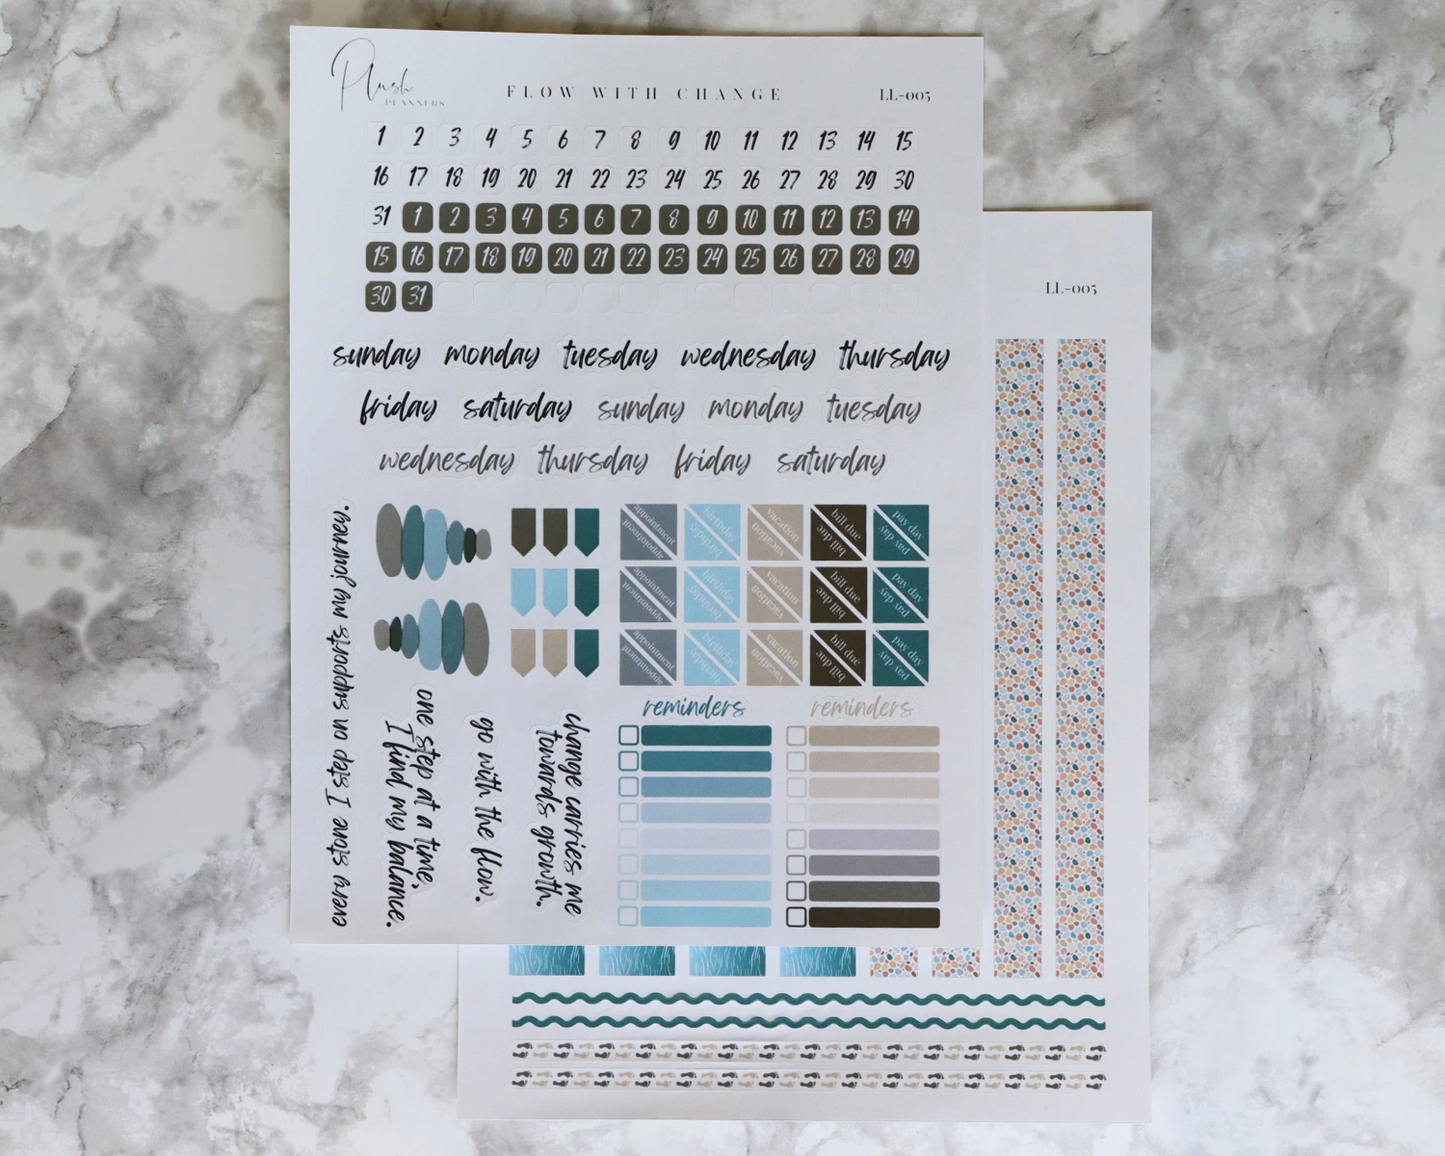 Plush
PLANNERS
FLOW WITH CHANGE
LL-005
1 2 3 4 5 6 7 8 9 10 11 12 13 14 15
16 17 18 19 20 21 22 23 24 25 26 27 28 29 30
31 1 2 3 4 5 6 7 8 9 10 11 12 13 14
15 16 17 18 19 20 21 22 23 24 25 26 27 28 29
30 31
sunday monday tuesday wednesday thursday
friday saturday sunday monday tuesday
wednesday thursday friday saturday
every stone I step on supports my journey.
one step at a time,
I find my balance.
go with the flow.
change carries me
towards growth.
appointment birthday vacation bill due pay day
appointment birthday vacation bill due pay day
appointment birthday vacation bill due pay day
appointment birthday vacation bill due pay day
appointment birthday vacation bill due pay day
appointment birthday vacation bill due pay day
reminders reminders
LL-005